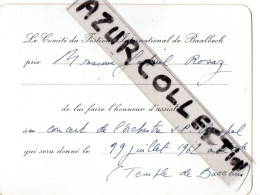 Le Comité du Festival International de Baalbeck
prie Monsieur Rosaz
AZUR COLLECTION
de lui faire l'honneur d'assister
au concert de l'orchestre
qui sera donné le 29 juillet 1962
Temple de Bacchus